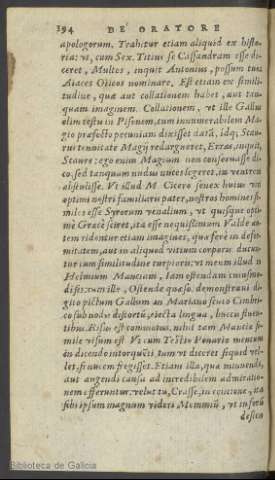 394 DE ORATORE
apologorum. Trahitur etiam aliquid ex histo-
ria: vt, cum Sex. Titius se Cassandram esse di-
ceret, Multos, inquit Antonius, possum tuos
Aiaces Oileos nominare. Est etiam ex simili-
tudine, quæ aut collationem habet, aut tan-
quam imaginem. Collationem, vt ille Gallus
olim testis in Pisonem, cum innumerabilem Ma-
gio præfecto pecuniam dixisset datã, idq; Scau-
rus tenuitate Magij redargueret, Erras, inquit,
Scaure: ego enim Magium non conseruasse di-
co, sed tanquam nudus nuces legeret, in ventrem
abstulisse. Vt illud M. Cicero senex huius viri
optimi nostri familiaris pater, nostros homines si-
miles esse Syrorum venalium, vt quisque opti-
mè Græcè sciret, ita esse nequissimum. Valde au-
tem ridentur etiam imagines, quæ ferè in defor-
mitatem, aut in aliquod vitium corporis ducun-
tur cum similitudine turpioris: vt meum illud in
Heluium Manciam, Iam ostendam cuiusmo-
di sis: cum ille, Ostende quæso: demonstraui di-
gito pictum Gallum in Mariano scuto Cimbri-
co sub nouis distortũ, eiecta lingua, buccis fluen-
tibus. Risus est commotus. nihil tam Manciæ si-
mile visum est. Vt cum Testio Pinario mentum
in dicendo intorquẽti: tum vt diceret siquid vel-
let, si nucem fregisset. Etiam illa, quæ minuendi,
aut augendi causa ad incredibilem admiratio-
nem efferuntur: velut tu, Crasse, in concione, ita
sibi ipsum magnum videri Memmiũ, vt in forũ
descen
Biblioteca de Galicia